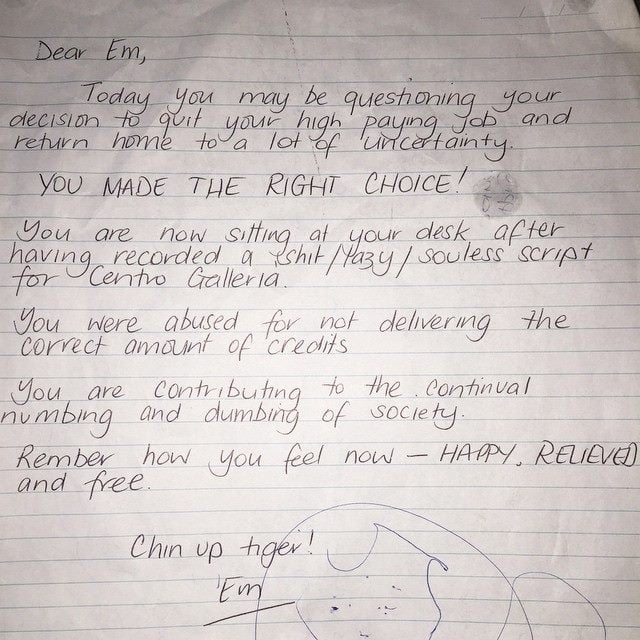 Dear Em,
Today you may be questioning your
decision to quit your high paying job and
return home to a lot of uncertainty.
YOU MADE THE RIGHT CHOICE!
You are now sitting at your desk after
having recorded a shit/lazy/souless script
for Centro Galleria.
You were abused for not delivering the
correct amount of credits
You are contributing to the continual
numbing and dumbing of society.
Rember how you feel now – HAPPY, RELIEVED
and free.
Chin up tiger!
Em